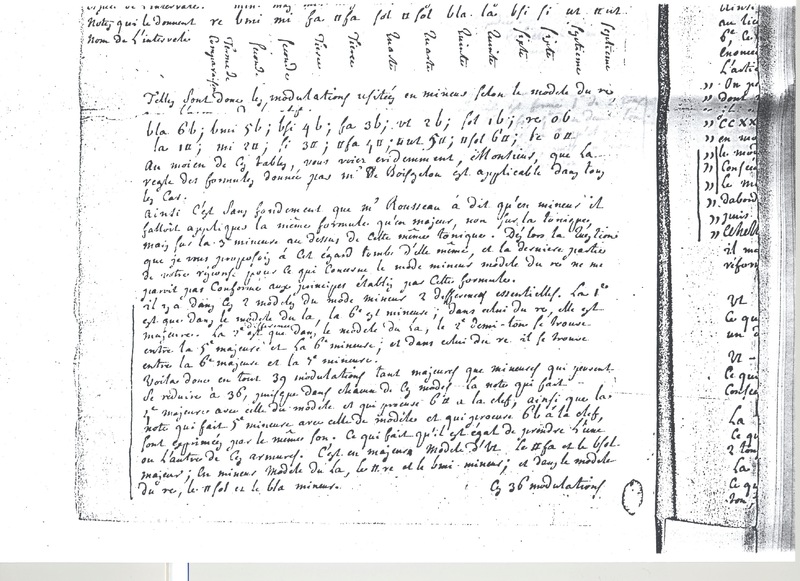 Notes qui le donnent re bmi mi fa ♯fa sol ♯sol bla. la bsi si ut ♯ut
Nom de L'intervale
Terme de Comparaison
Second.
Seconde
Tierce
Tierce
Quarte
Quarte
Quinte
Quinte
Sixte
Sixte
Septieme
Septieme
Telles sont donc les modulations usitées en mineur selon le modele du re
bla 6b; bmi 5b; bsi 4b; fa 3b; ut 2b; sol 1b; re 0b
la 1♯; mi 2♯; si 3♯; ♯fa 4♯; ♯ut 5♯; ♯sol 6♯; re 0♯
Au moien de Ces tables, vous voiez evidemment, Monsieur, que La
regle des formules donnée par Mr De Boisgelou est applicable dans tous
les Cas.
Ainsi C'est sans fondement que Mr Rousseau à dit qu'en mineur il
falloit appliquer la même formule qu'en majeur, non sur la tonique,
mais sur la 3e mineure au dessus de Cette même tonique. Dès lors la Question
que je vous proposois à Cet égard tombe d'elle même, et la derniere partie
de votre reponse pour Ce qui Concerne le mode mineur modele du re ne me
paroit pas Conforme aux principes etablis par Cette formule.
il y a dans Ces 2 modeles du mode mineur 2 differences essentielles. La 1re
est que dans le modele du la, la 6e est mineure; dans celui du re, elle est
majeure. La 2e difference est que dans le modele du La, le 2e demi-ton se trouve
entre la 5e majeure et La 6e mineure; et dans celui du re il se trouve
entre la 6e majeure et la 7e mineure.
Voila donc en tout 39 modulations tant majeures que mineures qui peuvent
se reduire à 36, puisque dans chacun de Ces modes la note qui fait
majeure avec celle du modele et qui procure 6♯ a la clef, ainsi que la
note qui fait 5e mineure avec celle du modele et qui procure 6b à la clef,
sont exprimées par le même son. Ce qui fait qu'il est egal de prendre L'une
ou L'autre de Ces armures. C'est en majeur Modele d'Ut, le ♯fa et le bsol
majeur; En mineur Modele du La, le ♯re et le bmi mineur; et dans le modele
du re, le ♯sol et le bla mineur.
Ces 36 modulations
au lie
6e Ce
enonc
L'arti
,, On p
,, Dont
,, CCXX
,, en mo
,, le mod
,, Consec
,, le m
,, Dabord
,, puis
il m
refor
Ut
Ce qu
un
Ut
Ce qu
Conse
La
Ce qu
2 ton
La
Ce qu
ton,